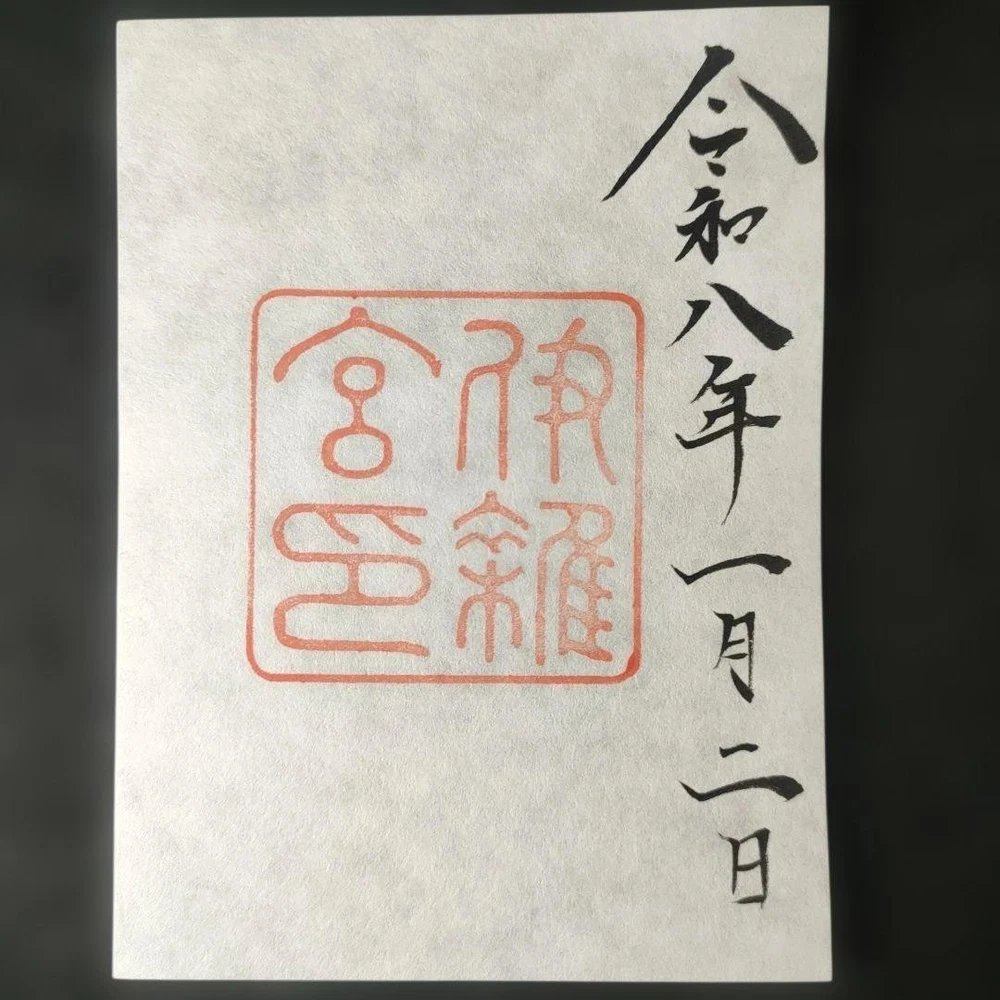 令和八年一月二日
伊雜
宮印